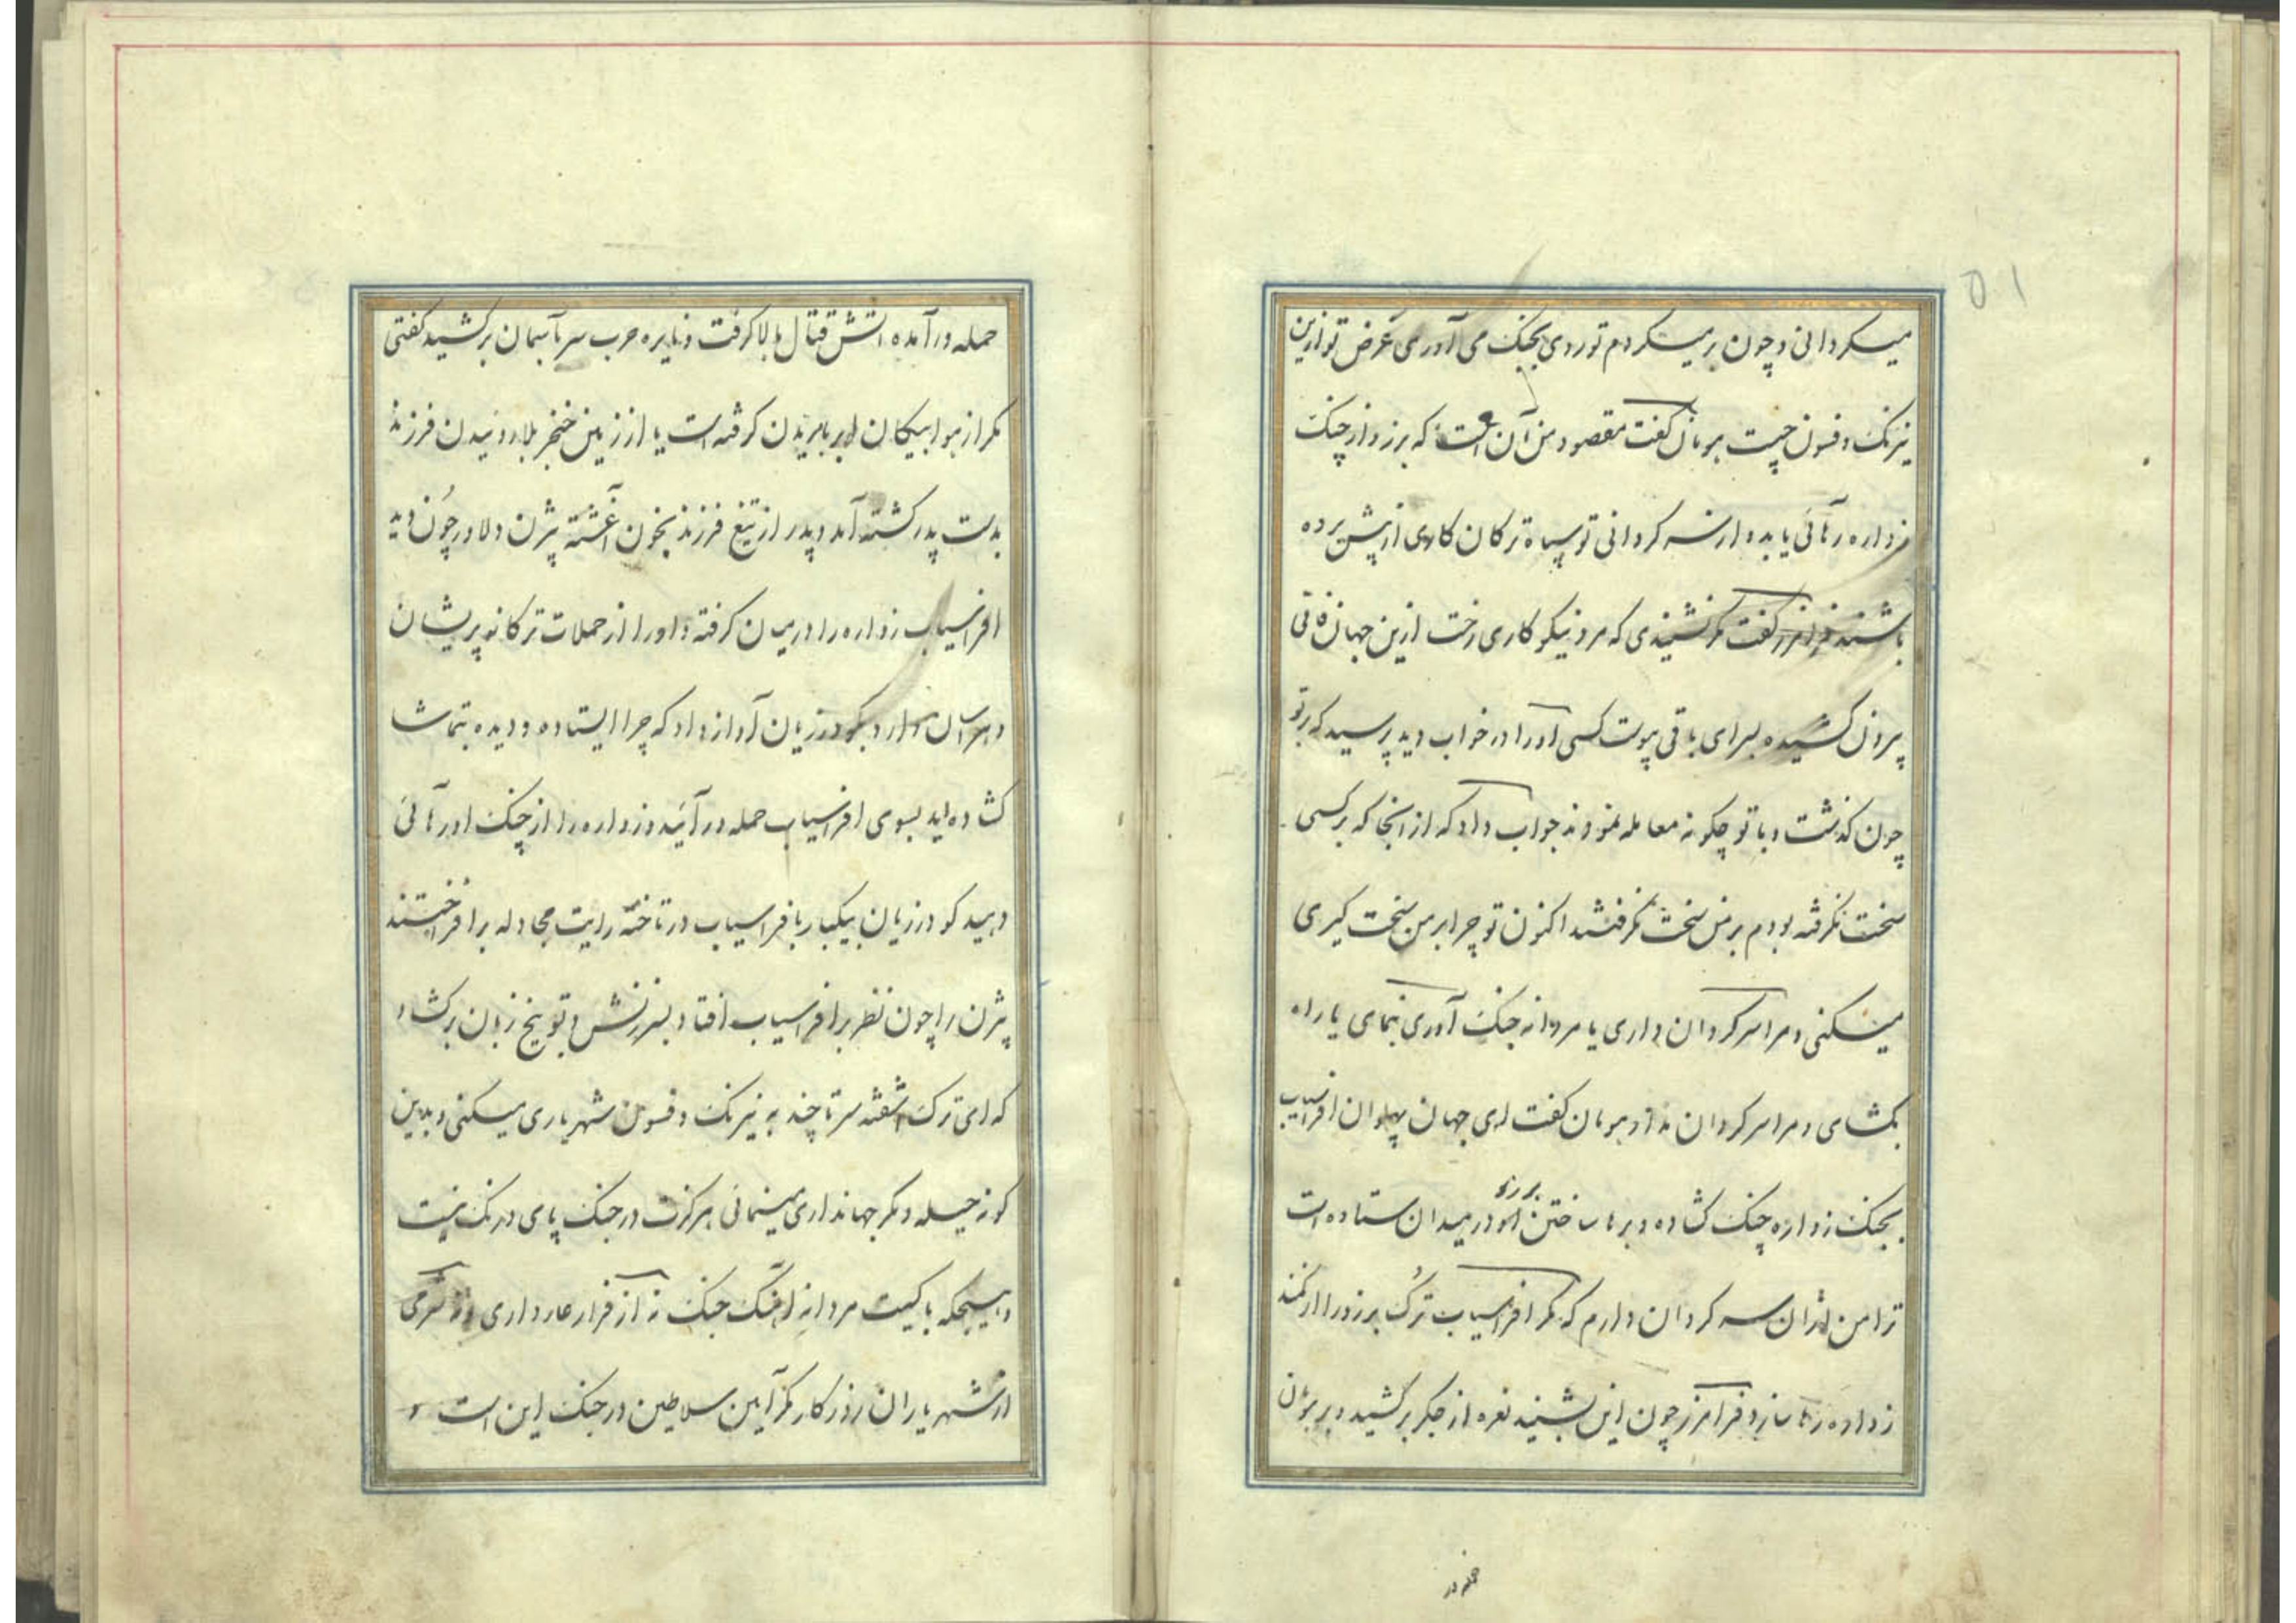 ۵۱
میکردانی و چون بر میکردم تو روی بجنک می آوری غرض تو ازین
نیرنک و فسون چیست هومان کفت مقصود من آن است که برزو از چنک
زواره رهائی یابد و از سر کردانی تو سپاه ترکان کاری از پیش برده
باشند فرامرز کفت مکر نشنیدی که مرد نیکو کاری رخت ازین جهان فانی
بیرون کشیده بسرای باقی پیوست کسی او را در خواب دید پرسید که بر تو
چون کذشت و با تو چکونه معامله نمودند جواب داد که از انجا که بر کسی
سخت نکرفته بودم بر من سخت نکرفتند اکنون تو چرا بر من سخت کیری
میکنی و مرا سر کردان داری یا مردانه جنک آوری بنمای یا راه
بکشای و مرا سر کردان مدار هومان کفت ای جهان پهلوان افراسیاب
بجنک زواره چنک کشاده و برها ساختن برزو در میدان ستاده است
ترا من ازان سر کردان دارم که مکر افراسیاب ترک برزو را از کمند
زواره رها سازد فرامرز چون این بشنید نعره از جکر بر کشید و بر
حمله در آمده اتش قتال بالا کرفت و نایره حرب سر بآسمان بر کشید کفتی
مکر از هوا پیکان ابر باریدن کرفته است یا از زمین خنجر بلا روئیدن فرزند
بدست پدر کشته آمد و پدر از تیغ فرزند بخون آغشته بیژن دلاور چون دید
افراسیاب زواره را در میان کرفته و او را از حملات ترکانه پریشان
و هراسان دارد بکودرزیان آواز داد که چرا ایستاده و دیده بتماشا
کشاده اید بسوی افراسیاب حمله در آئید و زواره را از چنک او رهائی
دهید کودرزیان بیکبار بافراسیاب در تاخته رایت مجادله بر افراختند
بیژن را چون نظر بر افراسیاب افتاد بسرزنش و توبیخ زبان بر کشاد
که ای ترک اشفته سر تا چند به نیرنک و فسون شهریاری میکنی و بدین
کونه حیله و مکر جهانداری مینمائی هرکزت در جنک پای درنک نیست
و هیچکه با کیت مردانه اهنک جنک نه از فرار عار داری و نه شرمی
از شهریاران روزکار مکر آیین سلاطین در جنک این است و